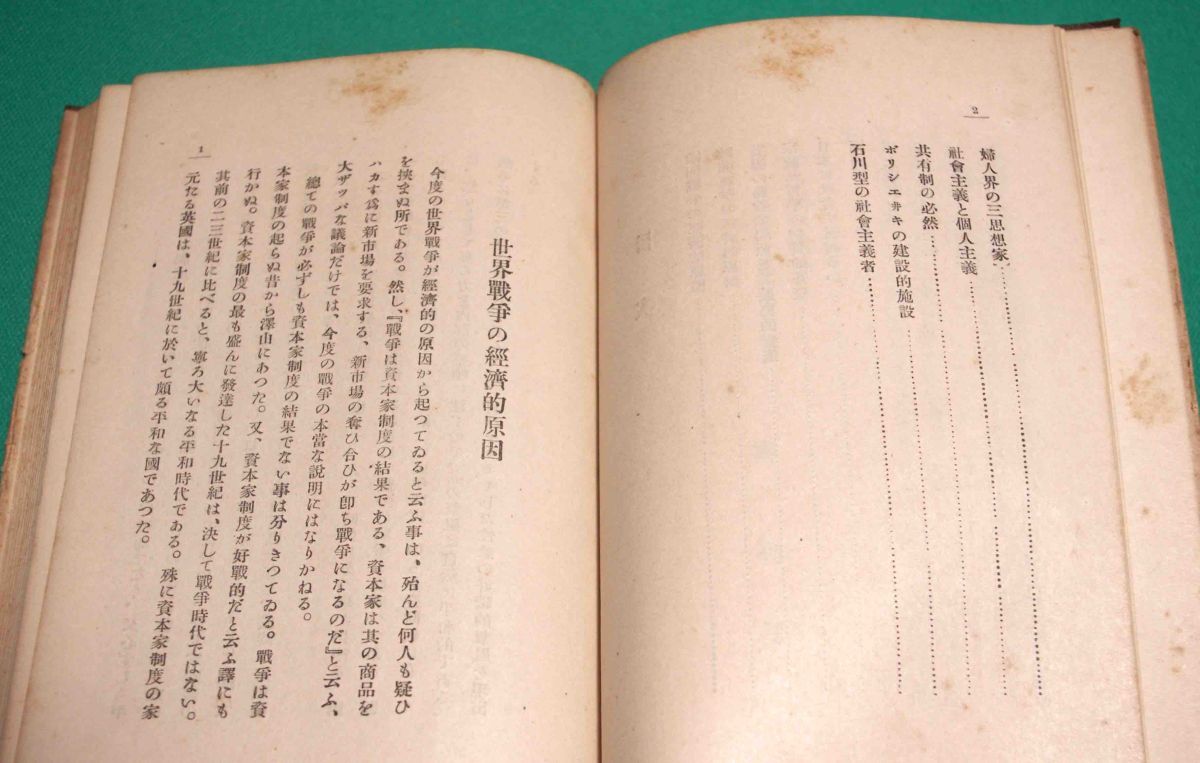 2
婦人界の三思想家
社會主義と個人主義
共有制の必然
ボリシエヰキの建設的施設
石川型の社會主義者
世界戰爭の經濟的原因
今度の世界戰爭が經濟的の原因から起つてゐると云ふ事は、殆んど何人も疑ひ
を挾まぬ所である。然し、『戰爭は資本家制度の結果である、資本家は其の商品を
ハカす爲に新市場を要求する、新市場の奪ひ合ひが卽ち戰爭になるのだ』と云ふ、
大ザッパな議論だけでは、今度の戰爭の本當な說明にはなりかねる。
總ての戰爭が必ずしも資本家制度の結果でない事は分りきつてゐる。戰爭は資
本家制度の起らぬ昔から澤山にあつた。又、資本家制度が好戰的だと云ふ譯にも
行かぬ。資本家制度の最も盛んに發達した十九世紀は、決して戰爭時代ではない。
其前の二三世紀に比べると、寧ろ大いなる平和時代である。殊に資本家制度の家
元たる英國は、十九世紀に於いて頗る平和な國であつた。
1